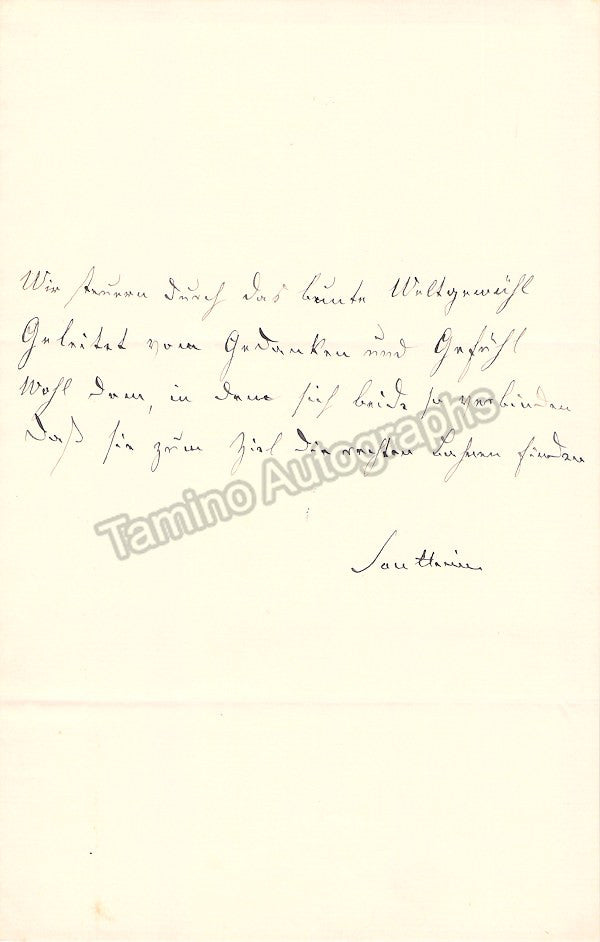 Wir steuern durch das bunte Weltgewühl
Geleitet vom Gedanken und Gefühl
Wohl dem, in dem sich beide so verbinden
Daß sie zum Ziel die rechten Bahnen finden
Tamino Autographs